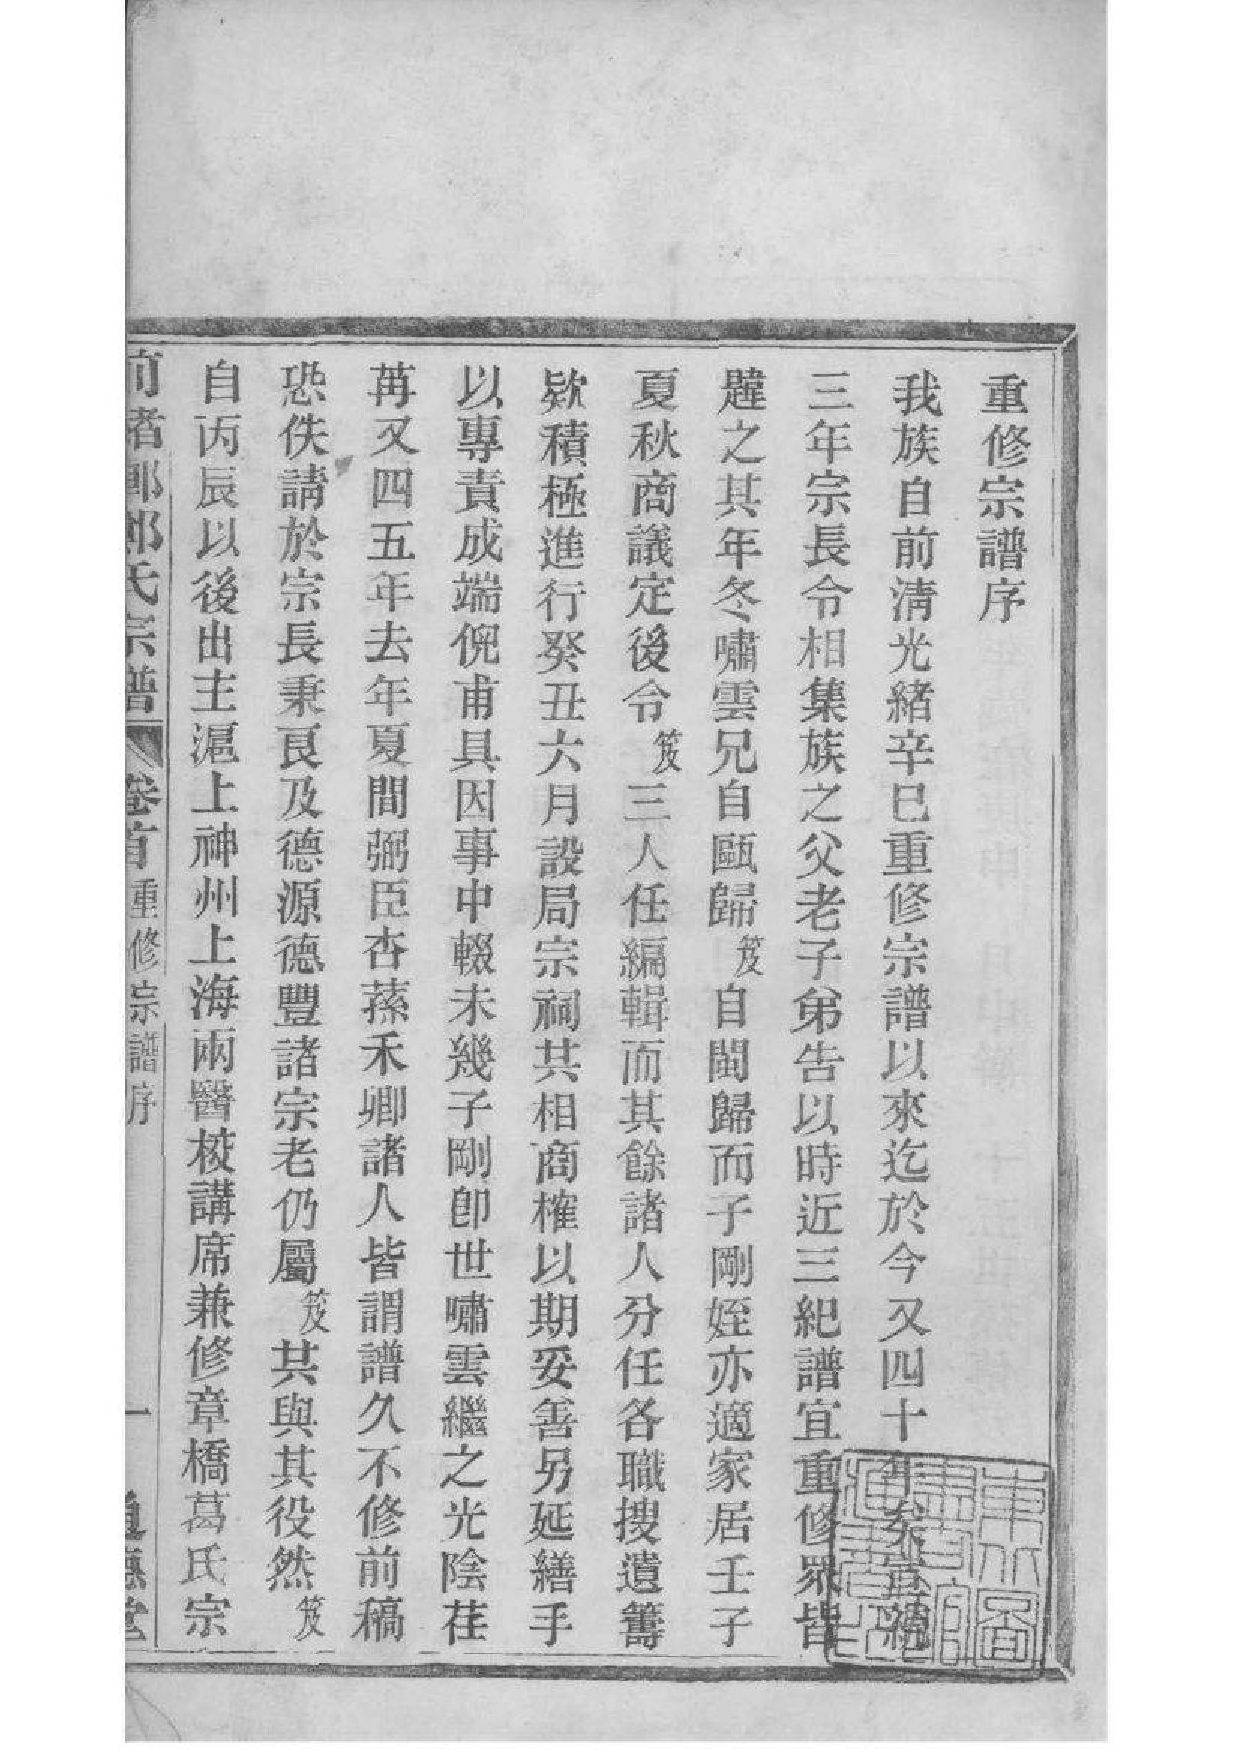 重修宗譜序
我族自前清光緒辛巳重修宗譜以來迄於今又四十年矣宣統
三年宗長令相集族之父老子弟告以時近三紀譜宜重修眾皆
韙之其年冬嘯雲兄自甌歸笈自閩歸而子剛姪亦適家居壬子
夏秋商議定後令笈三人任編輯而其餘諸人分任各職搜遺籌
欵積極進行癸丑六月設局宗祠共相商榷以期妥善另延繕手
以專責成端倪甫具因事中輟未幾子剛卽世嘯雲繼之光陰荏
苒又四五年去年夏間弼臣杏蓀禾卿諸人皆謂譜久不修前稿
恐佚請於宗長秉艮及德源德豐諸宗老仍屬笈共與其役然笈
自丙辰以後出主滬上神州上海兩醫校講席兼修章橋葛氏宗
前渚鄭鄭氏宗譜 卷首 重修宗譜序 一 道德堂